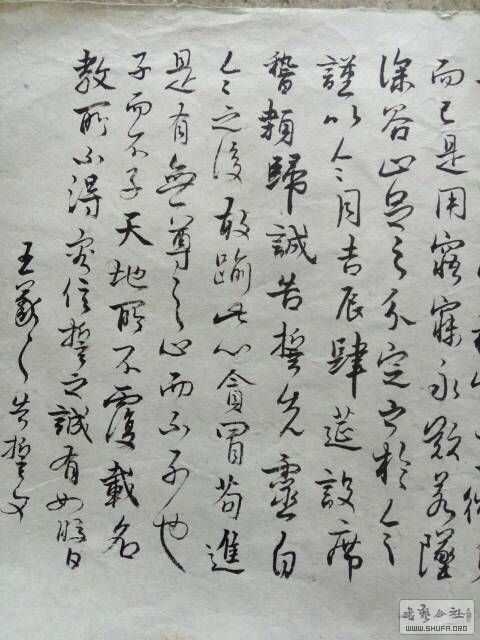 而已是用寤寐永歎若墜
深谷止足之分定之於今
謹以今月吉辰肆莚設席
稽顙歸誠告誓先靈自
今之後敢踰此心貪冒苟進
是有無尊之心而不子也
子而不子天地所不覆載名
教所不得容信誓之誠有如曒日
王羲之告誓文
书艺公社
WWW.SHUFA.ORG